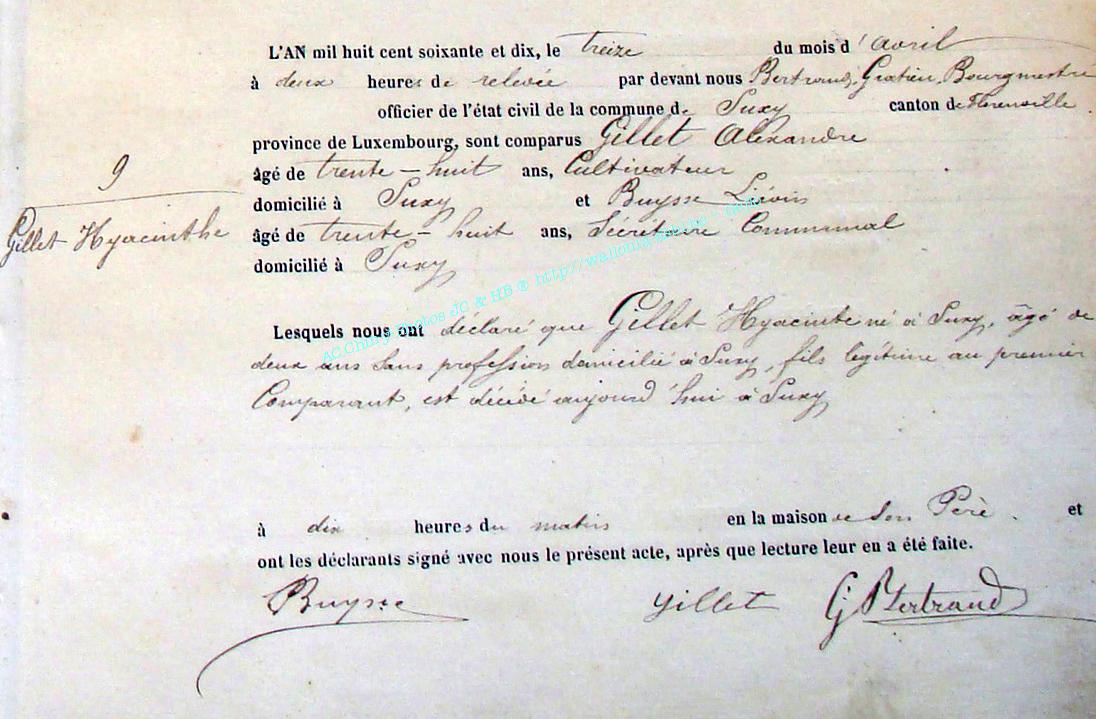 L'AN mil huit cent soixante et dix, le treize du mois d'avril
à deux heures de relevée par devant nous Bertrand, Gratien, Bourgmestre
officier de l'état civil de la commune de Suxy canton de Florenville
province de Luxembourg, sont comparus Gillet Alexandre
âgé de trente-huit ans, Cultivateur
domicilié à Suxy et Buysse Liévin
âgé de trente-huit ans, Sécrétaire Communal
domicilié à Suxy
9
Gillet Hyacinthe
Lesquels nous ont déclaré que Gillet Hyacinte né à Suxy, âgé de
deux ans sans profession domicilié à Suxy, fils légitime au premier
Comparant, est décédé aujourd'hui à Suxy
à dix heures du matin en la maison de son Père. et
ont les déclarants signé avec nous le présent acte, après que lecture leur en a été faite.
Buysse Gillet G Bertrand
AC Chiny Photos JC & HB ® http://wallonia